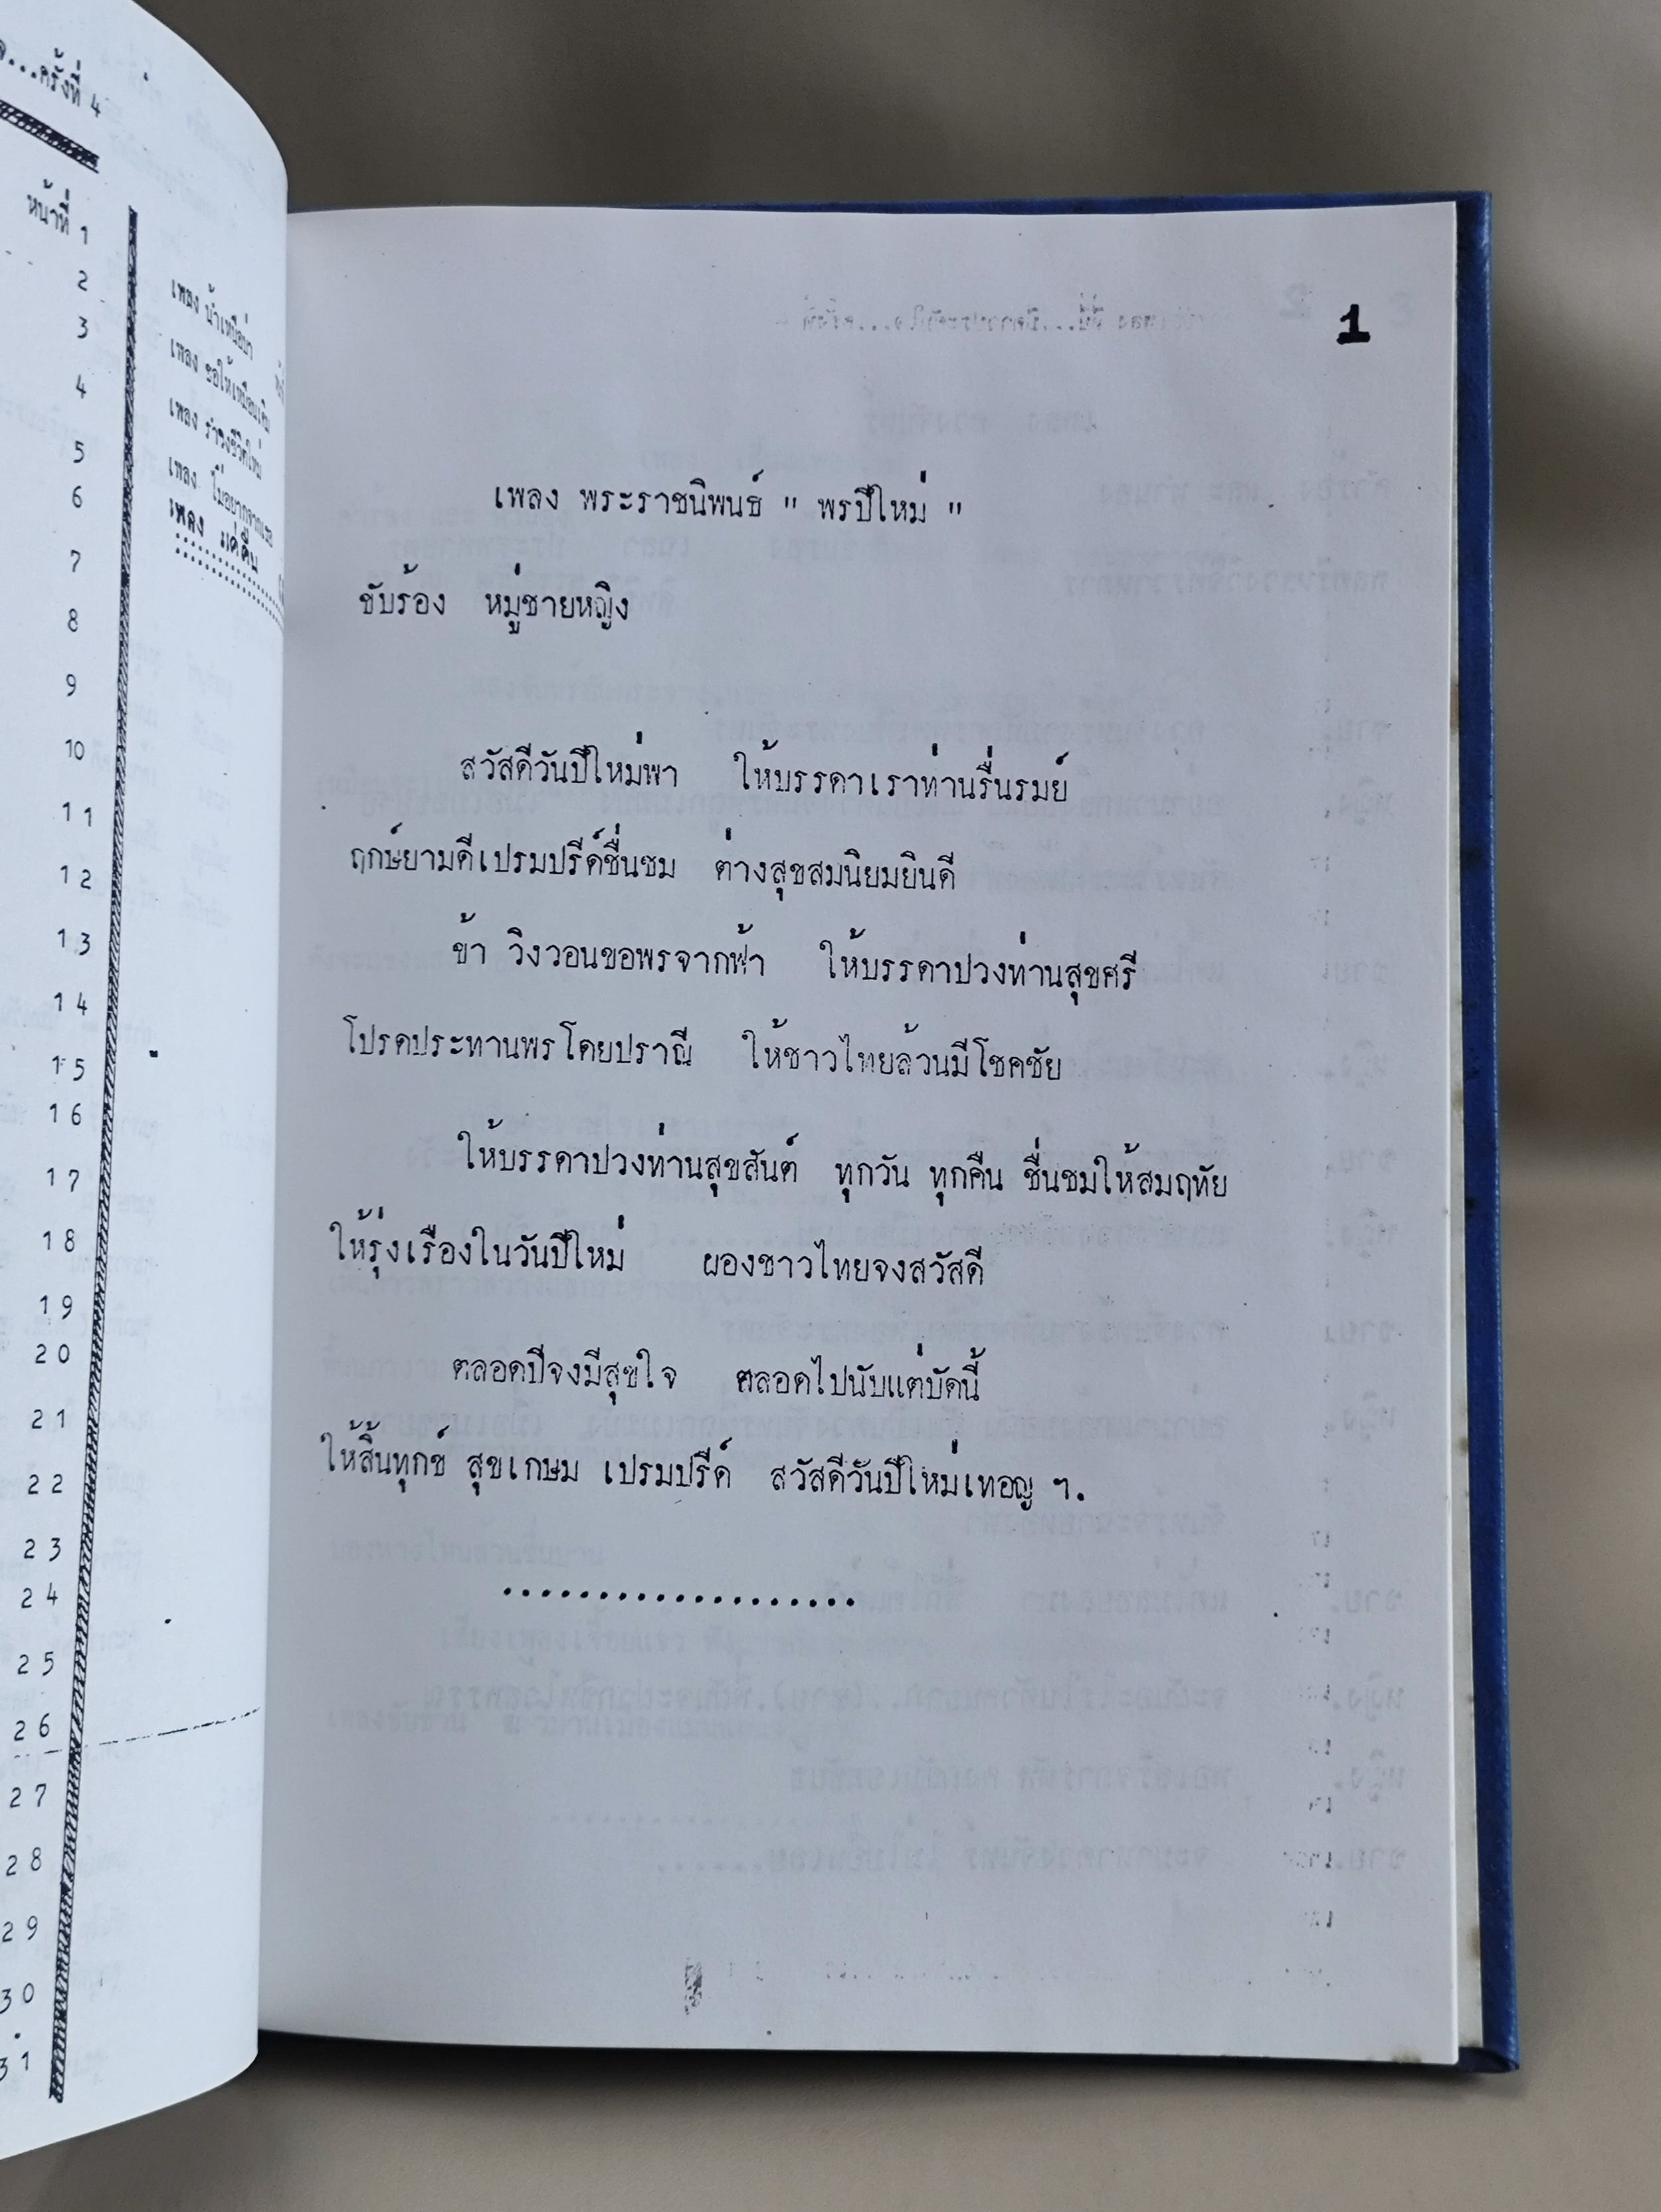 ครั้งที่ 4
หน้าที่ 1
2
3
4
5
6
7
8
9
10
11
12
13
14
15
16
17
18
19
20
21
22
23
24
25
26
27
28
29
30
31
เพลง น้ำเหนือบ่า
เพลง ขอให้เหมือนเดิม
เพลง รำวงชีวิตใหม่
เพลง ไม่อยากจากเธอ
เพลง แค่คืบ
1
เพลง พระราชนิพนธ์ " พรปีใหม่ "
ขับร้อง หมู่ชายหญิง
สวัสดีวันปีใหม่พา ให้บรรดาเราท่านรื่นรมย์
ฤกษ์ยามดีเปรมปรีด์ชื่นชม ต่างสุขสมนิยมยินดี
ข้า วิงวอนขอพรจากฟ้า ให้บรรดาปวงท่านสุขศรี
โปรดประทานพรโดยปราณี ให้ชาวไทยล้วนมีโชคชัย
ให้บรรดาปวงท่านสุขสันต์ ทุกวัน ทุกคืน ชื่นชมให้สมฤทัย
ให้รุ่งเรืองในวันปีใหม่ ผองชาวไทยจงสวัสดี
ตลอดปีจงมีสุขใจ ตลอดไปนับแต่บัดนี้
ให้สิ้นทุกข์ สุขเกษม เปรมปรีด์ สวัสดีวันปีใหม่เทอญ ฯ.
...................